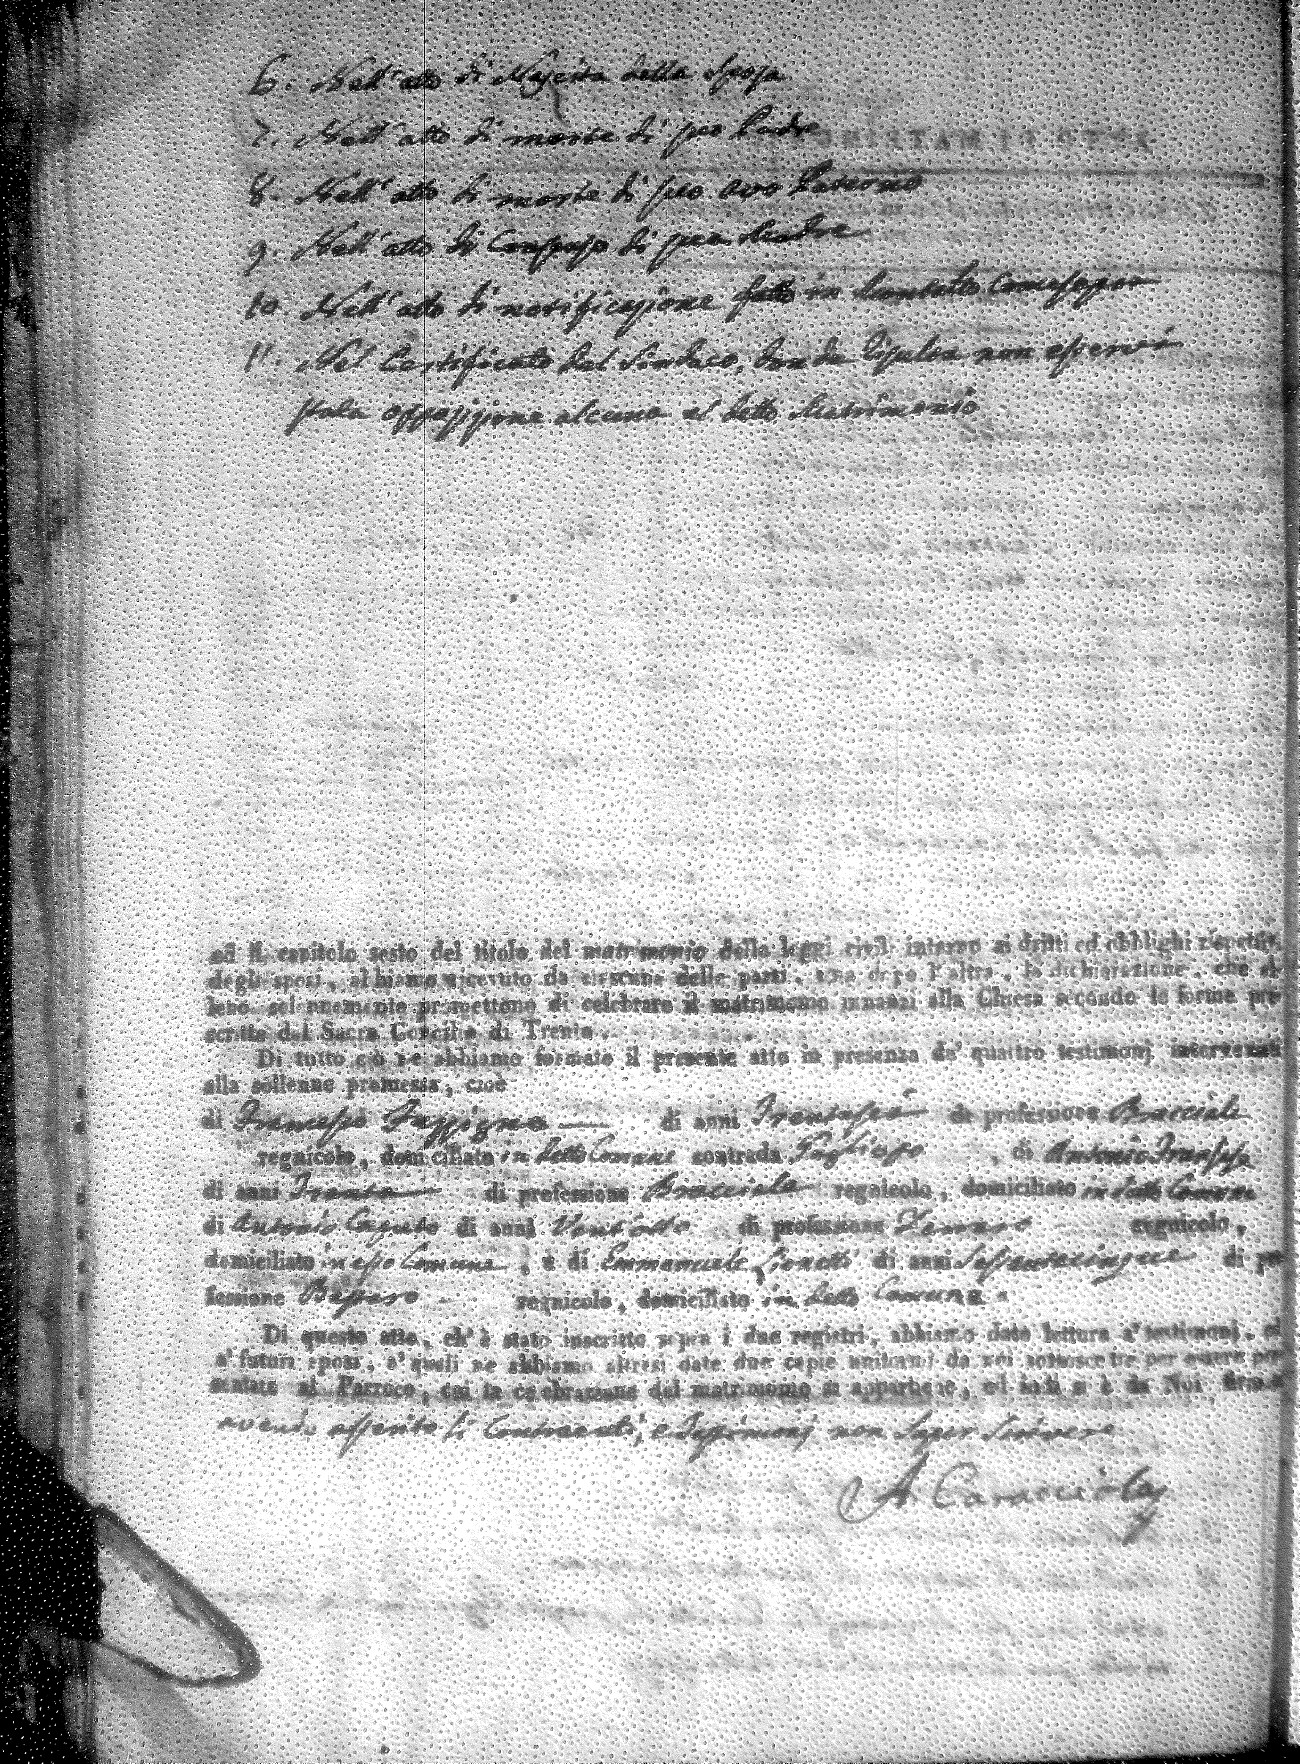 6. Nell'atto di Nascita della sposa
7. Nell'atto di morte di suo Padre
8. Nell'atto di morte di suo avo Paterno
9. Nell'atto di Consenso di sua Madre
10. Nell'atto di notificazione fatto in
11. Nel Certificato del Sindaco, don de risulta non esservi
stata opposizione alcuna al detto Matrimonio
ed il capitolo sesto del titolo del matrimonio delle leggi civili intorno ai dritti ed obblighi rispettivi
degli sposi, abbiamo ricevuto da ciascuna delle parti, una dopo l'altra, la dichiarazione, che el-
leno solennemente promettono di celebrare il matrimonio innanzi alla Chiesa secondo le forme pre-
scritte dal Sacro Concilio di Trento.
Di tutto ciò ne abbiamo formato il presente atto in presenza de' quattro testimonj intervenuti
alla solenne promessa, cioè
di Francesco di anni Trentasei di professione Bracciale
regnicolo, domiciliato in detto Comune contrada , di Antonio
di anni Trenta di professione Bracciale regnicolo, domiciliato in detto Comune
di Antonio Caputo di anni Ventotto di professione Ferraro regnicolo,
domiciliato in esso Comune, e di Emmanuele di anni Sessantacinque di pro
fessione regnicolo, domiciliato in detto Comune.
Di questo atto, ch'è stato inscritto sopra i due registri, abbiamo dato lettura a' testimonj, ed
a' futuri sposi, a' quali ne abbiamo altresì date due copie uniformi da noi sottoscritte per essere pre
sentate al Parroco, cui la celebrazione del matrimonio si appartiene, ed indi si è da Noi firmato
avendo asserito li Contraenti, e Testimonj non saper scrivere
A. Caracciolo